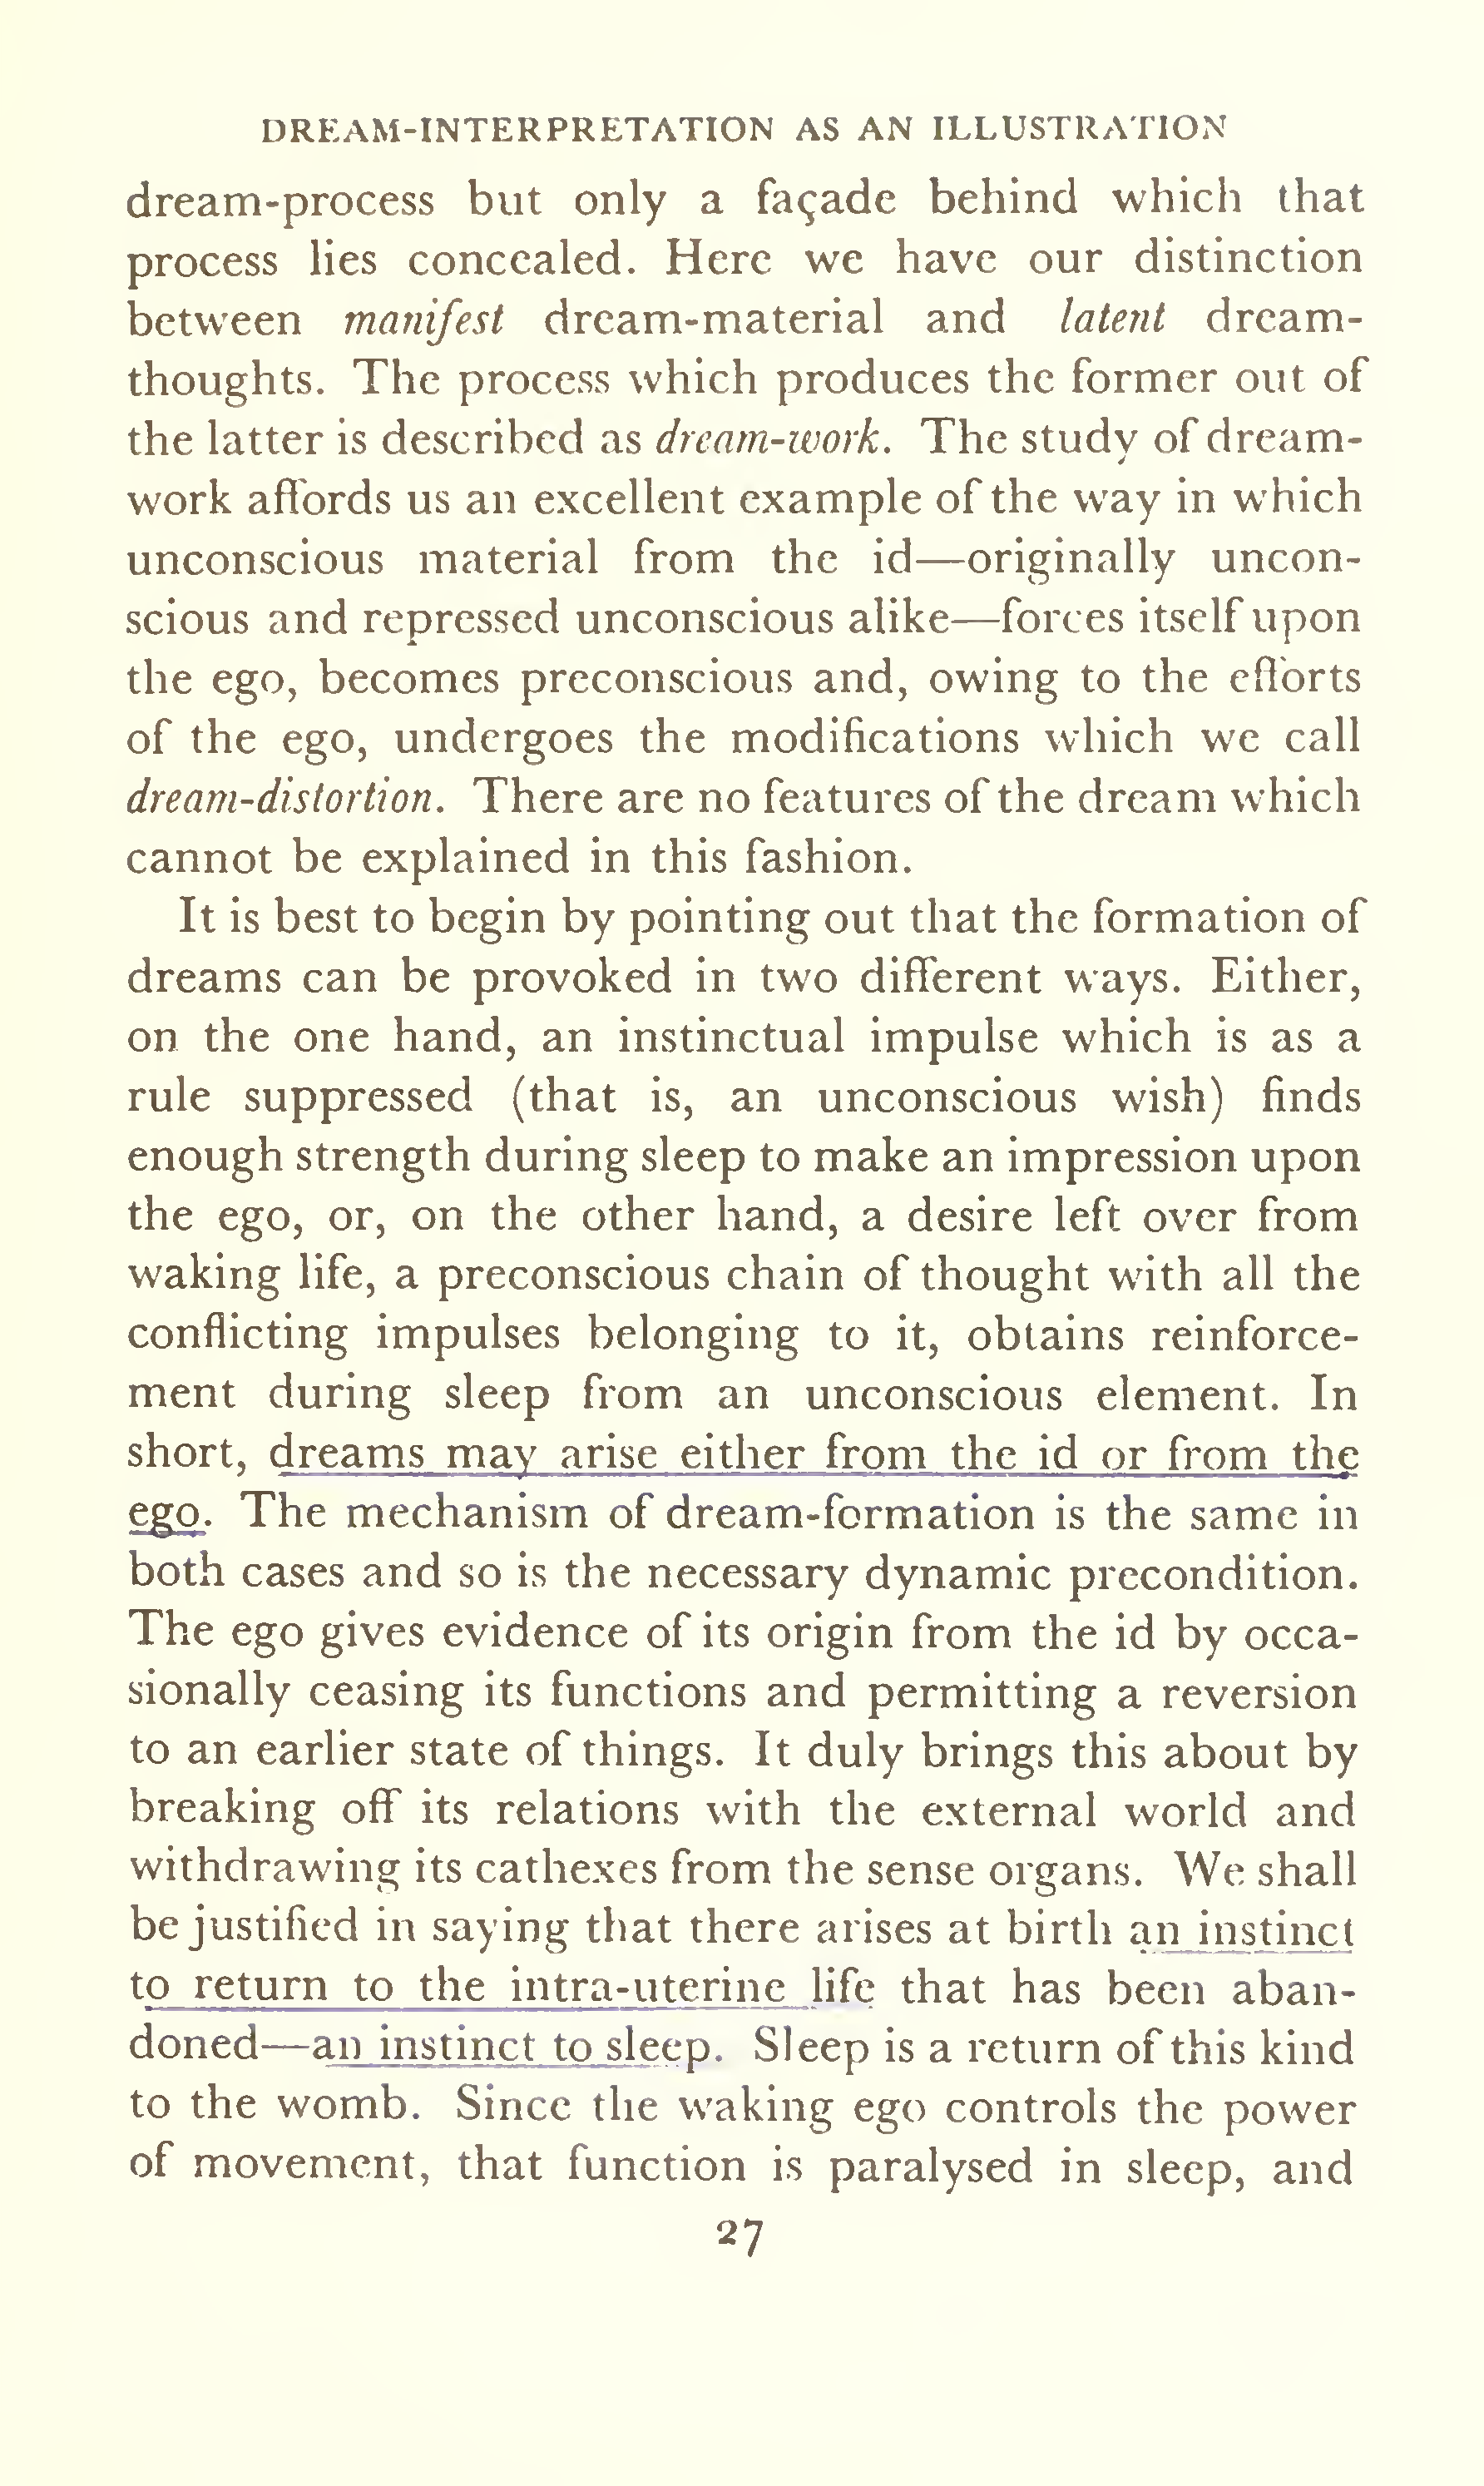 DREAM-INTERPRETATION AS AN ILLUSTRATION
dream-process but only a façade behind which that
process lies concealed. Here we have our distinction
between manifest dream-material and latent dream-
thoughts. The process which produces the former out of
the latter is described as dream-work. The study of dream-
work affords us an excellent example of the way in which
unconscious material from the id—originally uncon-
scious and repressed unconscious alike—forces itself upon
the ego, becomes preconscious and, owing to the efforts
of the ego, undergoes the modifications which we call
dream-distortion. There are no features of the dream which
cannot be explained in this fashion.
It is best to begin by pointing out that the formation of
dreams can be provoked in two different ways. Either,
on the one hand, an instinctual impulse which is as a
rule suppressed (that is, an unconscious wish) finds
enough strength during sleep to make an impression upon
the ego, or, on the other hand, a desire left over from
waking life, a preconscious chain of thought with all the
conflicting impulses belonging to it, obtains reinforce-
ment during sleep from an unconscious element. In
short, dreams may arise either from the id or from the
ego. The mechanism of dream-formation is the same in
both cases and so is the necessary dynamic precondition.
The ego gives evidence of its origin from the id by occa-
sionally ceasing its functions and permitting a reversion
to an earlier state of things. It duly brings this about by
breaking off its relations with the external world and
withdrawing its cathexes from the sense organs. We shall
be justified in saying that there arises at birth an instinct
to return to the intra-uterine life that has been aban-
doned—an instinct to sleep. Sleep is a return of this kind
to the womb. Since the waking ego controls the power
of movement, that function is paralysed in sleep, and
27